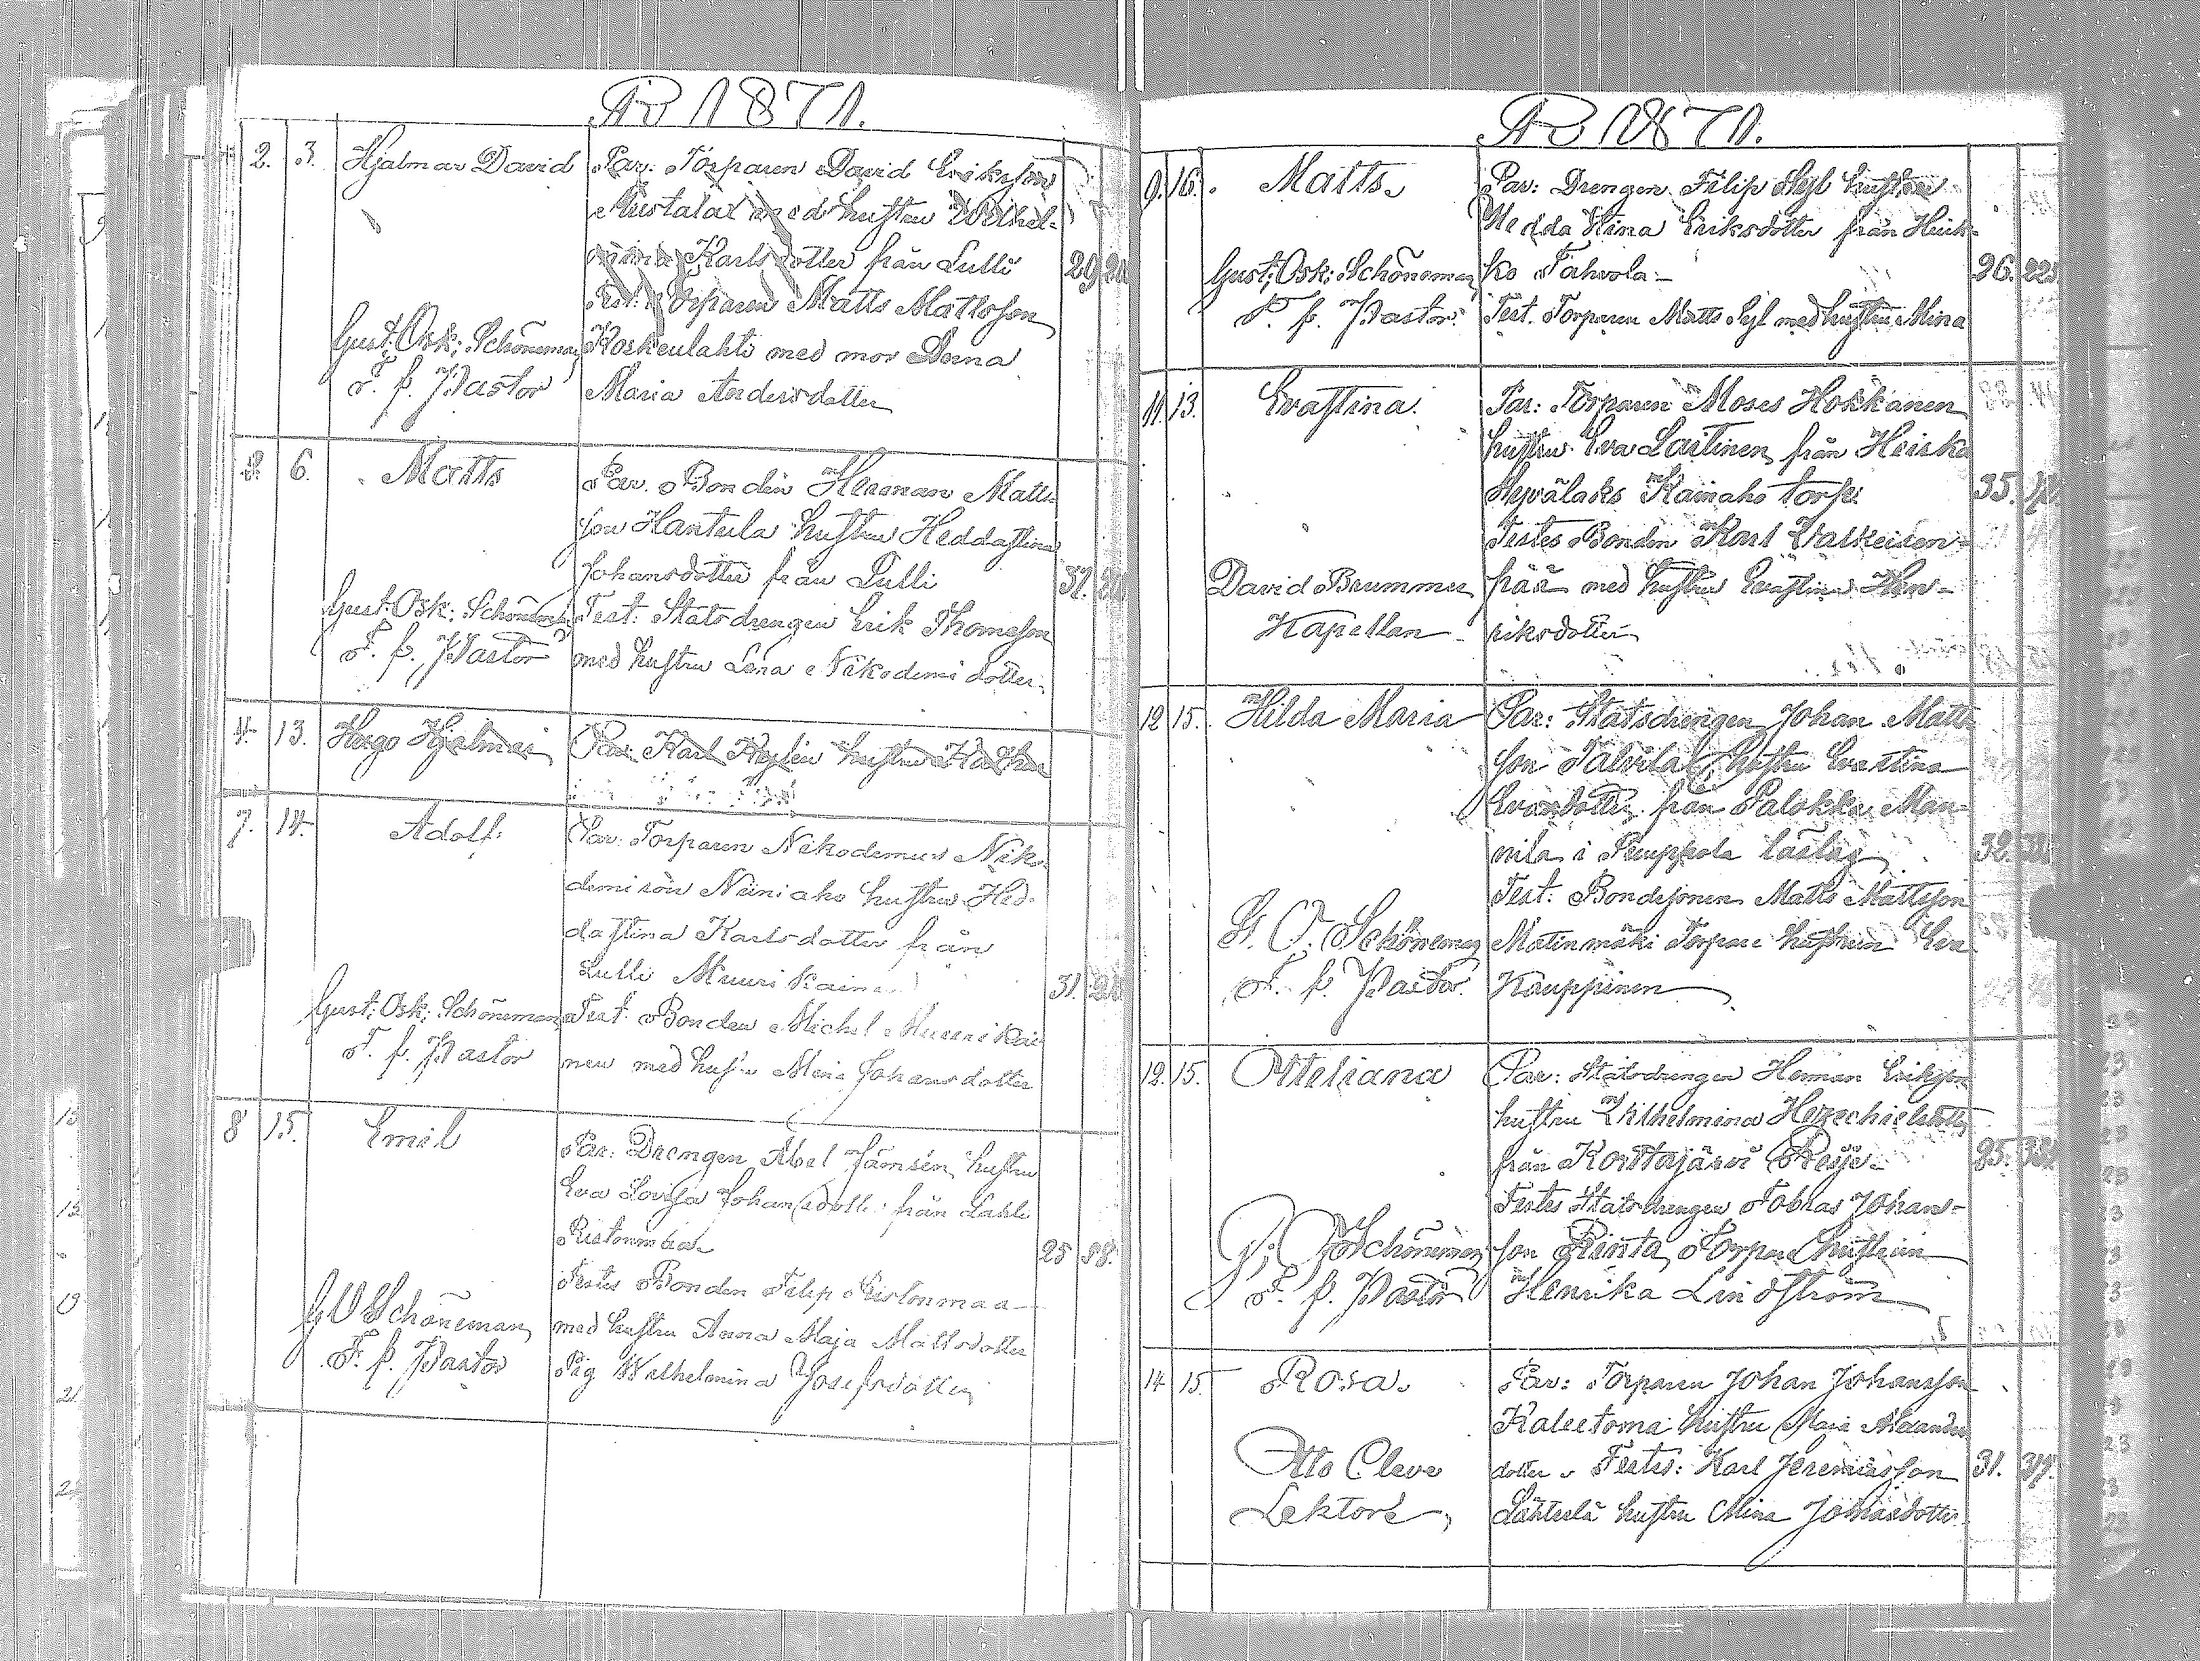 År 1871.
2. 3. Hjalmar David Par: Torparen David Eriksson
Mustalax med hustru Wilhel-
mina Karlsdotter från Lulli
29
Test: Torparen Matts Mattsson
Gust: Osk: Schöneman Koskenlahti med mor Dorna
T. f. Pastor Maria Andersdotter
2. 6. Matts Par. Bonden Herman Matts
son Hantula hustru Heddastina
Johansdotter från Lulli
Gust: Osk: Schöneman Test: Statsdrengen Erik Thomasson
T. f. Pastor med hustru Lena Nikodemi dotter.
4. 13. Hugo Hjalmar Par: Karl hustru
7. 14. Adolf: Par: Torparen Nikodemus Niko-
demi son Niiniaho hustru Hed-
dastina Karlsdotter från
Lulli Muurikain
31.
Gust: Osk: Schöneman Test. Bonden Michel Muurikai
T. f. Pastor nen med hustru Mina Johansdotter
8 15. Emil Par: Drengen Abel Jämsén hustru
Eva Lovisa Johansdotter från Lahti
Ristonmaa
25 58.
Testes Bonden Filip Ristonmaa
G O Schöneman med hustru Anna Maja Mattsdotter
T. f. Pastor Pig. Wilhelmina Josefsdotter
År 1871.
9. 16. Matts. Par: Drengen Filip Sejl hustru
Hedda Stina Eriksdotter från Heisk-
Gust: Osk: Schöneman ko Tahvola 26.
T. f. Pastor. Test. Torparen Matts Sejl med hustru Mina
11. 13. Evastina. Par: Torparen Moses Hokkanen
hustru Eva Laitinen från Heiska
Kainaho torp.
35.
Testes Bonden Karl
David Brummer med hustru Evastina Hen-
Kapellan riksdotter
12 15. Hilda Maria Par: Statsdrengen Johan Matts
son Talvila, hustru Evastina
från Palokka Man-
nila i Puuppola läslag
32.
Test: Bondesonen Matts Mattsson
G. O. Schöneman Matinmäki Torpare hustrun Eva
T. f. Pastor. Kauppinen
12. 15. Otteliana Par: Statsdrengen Herman Eriksson
hustru Wilhelmina Hezechielsdotter
från Korttajärvi
25.
Testes Statsdrengen Tobias Johans-
G. O. Schöneman son Rinta, Torpare hustrun
T. f. Pastor Henrika Lindström
14 15 Rosa. Par: Torparen Johan Johansson
hustru Maja Alexanders
Otto Cleve dotter. Testes: Karl Jeremiasson 31. 317.
Lektor hustru Mina